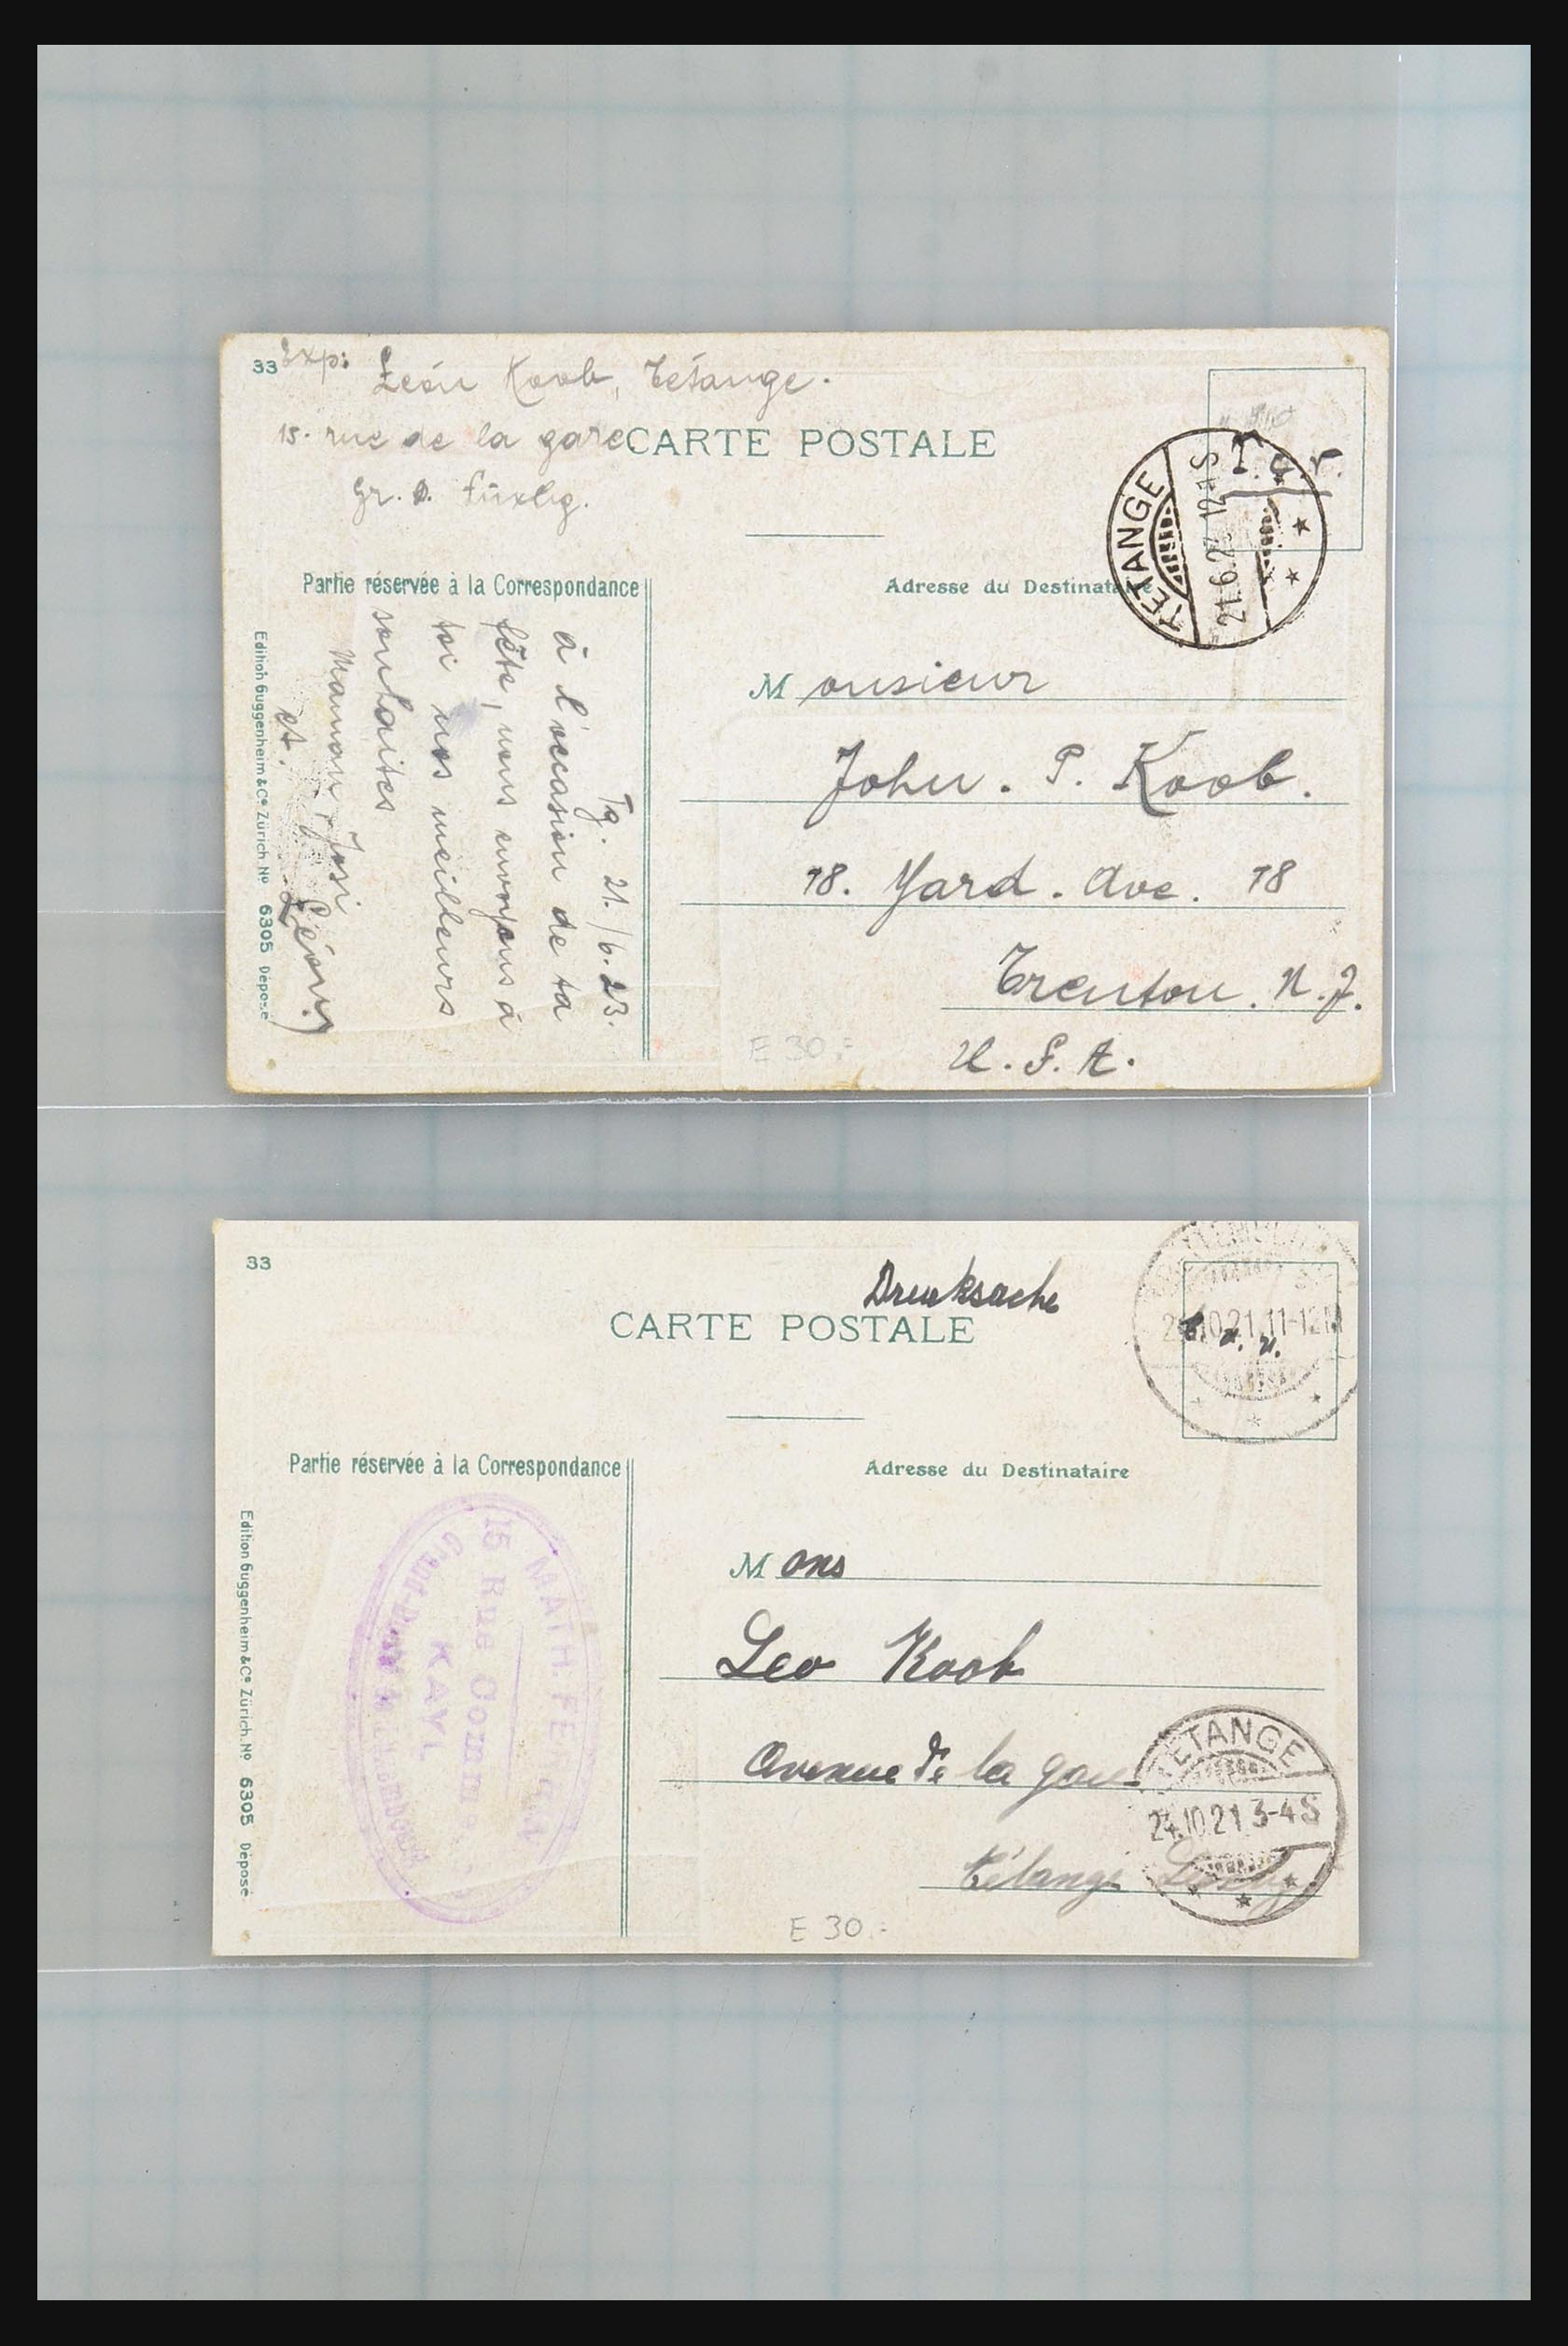 33
Exp: Léon Koob, Tétange.
15. rue de la gare
CARTE POSTALE
Gr. D. Luxbg.
T. a. r.
TÉTANGE
21.6.23 12-1S
Partie réservée à la Correspondance
Adresse du Destinataire
Tg. 21./6.23.
à l'occasion de ta
fête, nous envoyons à
toi nos meilleurs
souhaites
Maman, Josi
et. Léon.)
Edition Guggenheim & Co Zürich No 6305 Déposé
Monsieur
John. P. Koob.
78. Yard. Ave. 78
Trenton. N.J.
U. S. A.
E 30.-
33
Drucksache
CARTE POSTALE
10.21.11-12
Partie réservée à la Correspondance
Adresse du Destinataire
MATH. FE
15 Rue Comm
KAYL
Grand-Duché de Luxembourg
Edition Guggenheim & Co Zürich No 6305 Déposé
Mons
Leo Koob
Avenue de la gare
Tétange Luxbg
TÉTANGE
24.10.21 3-4S
E 30.-